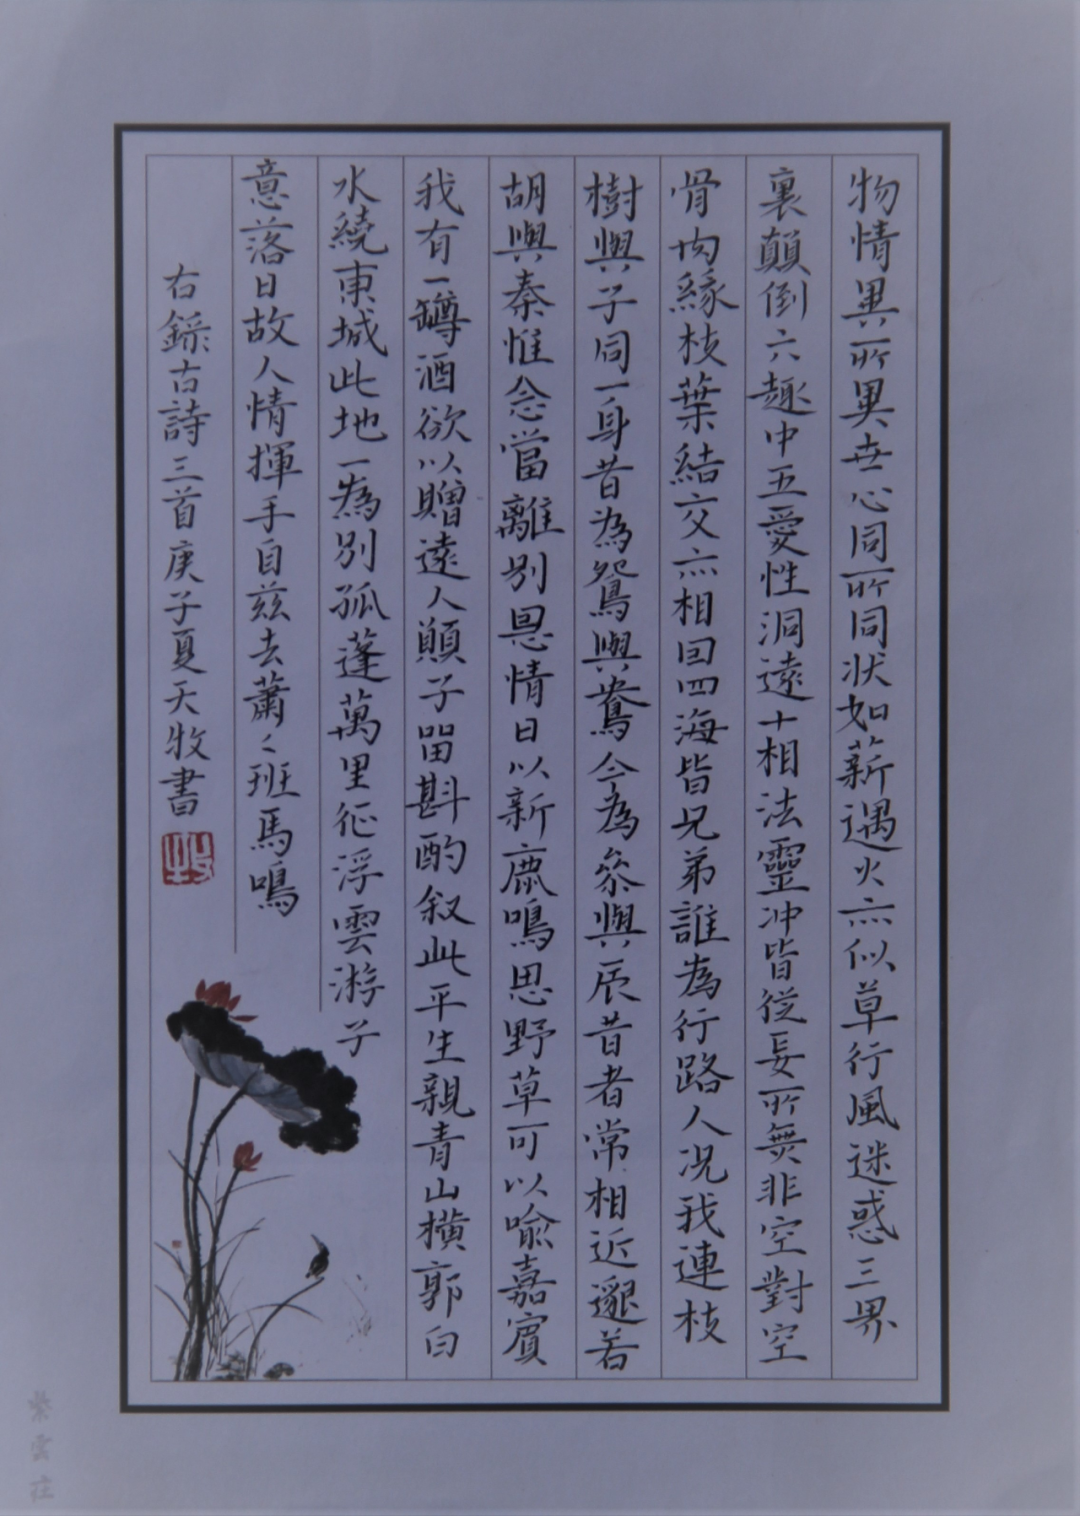 物情異所異世心同所同状如薪遇火亦似草行風迷惑三界
裏顛倒六趣中五愛性洞遠十相法靈冲皆從妄所無非空對空
骨肉緣枝葉結交亦相因四海皆兄弟誰為行路人况我連枝
樹與子同一身昔為鴛與鴦今為參與辰昔者常相近邈若
胡與秦惟念當離別恩情日以新鹿鳴思野草可以喻嘉賓
我有一罇酒欲以贈遠人願子留斟酌叙此平生親青山橫郭白
水繞東城此地一為别孤蓬萬里征浮雲游子
意落日故人情揮手自兹去蕭〻班馬鳴
右錄古詩三首庚子夏天牧書
牧
紫雲莊